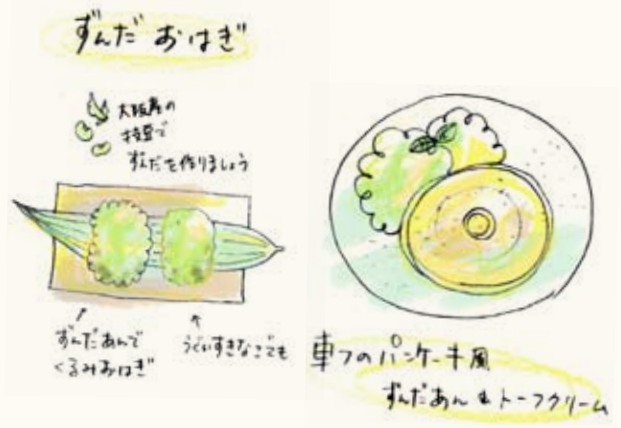 ずんだ おはぎ
大阪産の
枝豆で
ずんだを作りましょう
ずんだあんで
くるみおはぎ
うぐいすきなこでも
車フのパンケーキ風
ずんだあん & トーフクリーム